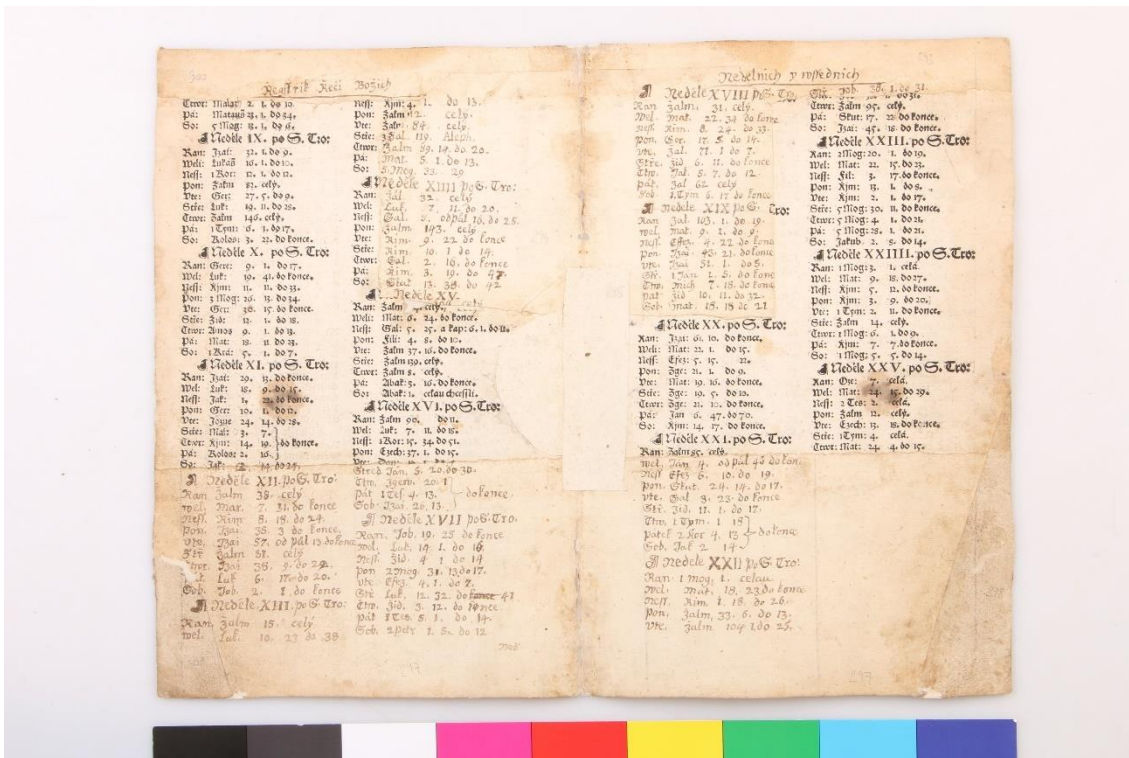 Regſtřik Řeči Božich
Cžtwr: Malaz 2. 1. do 10.
Pá: Matauš 23. 1. do 34.
So: 5 Mog: 13. 1. do 6.
Neděle IX. po S. Tro:
Ran: Izai: 32. 1. do 9.
Weli: Lukáš 16. 1. do 10.
Neſſ: 1 Kor: 12. 1. do 12.
Pon: Žalm 82. celý.
Vte: Ger: 27. 5. do 9.
Stře: Luk: 19. 11. do 28.
Cžtwr: Žalm 146. celý.
Pá: 1 Tym: 6. 1. do 17.
So: Kolos: 3. 22. do konce.
Neděle X. po S. Tro:
Ran: Gere: 9. 1. do 17.
Wel: Luk: 19. 41. do konce.
Neſſ: Řjm: 11. 11. do 33.
Pon: 3 Mog: 26. 13. do 34.
Vte: Ger: 36. 15. do konce.
Stře: Žid: 12. 1. do 18.
Cžtwr: Amos 9. 1. do 13.
Pá: Mat: 18. 11. do 23.
So: 1 Krá: 5. 1. do 7.
Neděle XI. po S. Tro:
Ran: Izai: 29. 13. do konce.
Wel: Luk: 18. 9. do 15.
Neſſ: Jak: 1. 22. do konce.
Pon: Ger: 10. 1. do 12.
Vte: Jozue 24. 14. do 28.
Stře: Mal: 3. 7.
Cžtwr: Řjm: 14. 19. do konce.
Pá: Kolos: 2. 16.
So: Jak: 14. do 24.
Neděle XII. po S. Tro:
Ran Žalm 38. celý
wel. Mar. 7. 31. do konce
Neſſ. Rim 8. 18. do 24.
Pon. Izai 35. 3 do konce
Vte. Izai 57. od půl 13 do konce
Stř Žalm 51. celý
Cžtwr. Izai 38. 9. do 22.
Luk 6. 17. do 20.
Sob. Job. 2. 1. do konce
Neděle XIII. po S. Tro:
Ran, Žalm 15. celý
wel. Luk. 10. 23 do 38
Neſſ: Řjm: 4. 1. do 13.
Pon: Žalm 42. celý.
Vte: Žalm 84. celý.
Stře: Žal. 119. Aleph.
Cžtwr: Žalm 89. 14. do 20.
Pá: Mat. 5. 1. do 13.
So: 5 Mog. 33. 29
Neděle XIIII po S. Tro:
Ran: Žal 32. celý
Wel: Luk. 7. 11. do 20.
Neſſ: Gal. 5. od půl 16. do 25.
Pon: Žalm 143. celý
Vte: Rim. 9. 22 do konce
Stře: Rim. 10. 1 do 14.
Cžtwr: Gal. 2. 16. do konce
Pá: Rim. 3. 19. do 47
So: Skut 13. 38. do 42
Neděle XV.
Ran: Žalm celý.
Weli: Mat: 6. 24. do konce.
Neſſ: Gal: 5. 25. a kap: 6. 1. do 11.
Pon: Fili: 4. 8. do 10.
Vte: Žalm 37. 16. do konce.
Stře: Žalm 139. celý.
Cžtwr: Žalm 8. celý.
Pá: Abak: 3. 16. do konce.
So: Abak: 1. celau chceſſli.
Neděle XVI. po S. Tro:
Ran: Žalm 90. do 11.
Wel: Luk: 7. 11. do 18.
Neſſ: 1 Kor: 15. 34. do 51.
Pon: Ezech: 37. 1. do 15.
Střed Jan. 5. 20. do 30.
Ctw. Zgew. 20. 1
Pát 1 Teſ 4. 13. do konce
Sob. Izai. 20. 13.
Neděle XVII po S. Tro.
Ran. Job. 19. 25 do konce
wel. Luk. 14. 1. do 16.
Neſſ. Žid. 4 1 do 14
Pon 2 Mog. 31. 13. do 17.
vte. Efez. 4. 1. do 7.
Stř Luk. 12. 32. do 41
Ctw. Žid. 3. 12. do konce
Pát 1 Tes. 5. 1. do 14.
Sob. 2 Petr 1. 5. do 12
Ned.
297
Nedělnich y wſſednich
Neděle XVIII po S. Tro.
Ran Žalm. 31. celý.
Wel. Mat. 22. 34 do konce
Neſſ. Rim. 8. 24. do 33.
Pon. Ger. 17. 5. do 14.
vte. Žal. 71. 1 do 7.
Stře. Žid 6. 11. do konce
Ctw. Jak. 5. 7. do 12.
pát. Žal 62 celý
Sob. 1 Tym 6. 17 do konce
Neděle XIX po S. Tro:
Ran Žal. 103. 1. do 19.
wel. Mat. 9. 1. do 9.
neſſ. Efez. 4. 22 do konc
Pon. Izai 43. 21. do konce
vte. Izai 51. 1. do 5.
Stř. 1 Jan 1. 5. do konc
Ctw. Mich 7. 18. do konce
pát Žid 10. 11. do 32.
Sob Mat. 18. 18 do 21
Neděle XX. po S. Tro:
Ran: Izai: 61. 10. do konce.
Weli: Mat: 22. 1. do 15.
Neſſ: Efez: 5. 15. 22.
Pon: Zge: 21. 1. do 9.
Vte: Mat: 19. 16. do konce.
Stře: Zge: 19. 5. do 10.
Cžtwr: Zge: 21. 10. do konce.
Pá: Jan 6. 47. do 70.
So: Řjm: 14. 17. do konce.
Neděle XXI. po S. Tro:
Ran: Žalm 25. celý.
wel. Jan 4. od půl 46 do kon.
neſſ Efez 6. 10. do 19.
pon. Skut. 24. 14. do 17.
vte. Gal 3. 23. do konce
Stř. Žid. 11. 1. do 17.
Ctw. 1 Tym. 1 18
Pátek 2 Kor 4. 13 do konce
Sob. Jak 2 14
Neděle XXII po S. Tro:
Ran: 1 Mog. 1. celau
wel. Mat. 18. 23 do konce
neſſ. Rim. 1. 18. do 26.
Pon. Žalm. 33. 6. do 13.
Vte. Žalm. 104 1. do 25.
Stř. Job. 38. 1. do 31.
Cžtwr: Žalm 95. celý.
Pá: Skut: 17. 22. do konce.
So: Izai: 45. 18. do konce.
Neděle XXIII. po S. Tro:
Ran: 2 Mog: 20. 1. do 19.
Wel: Mat: 22. 15. do 23.
Neſſ: Fil: 3. 17. do konce.
Pon: Řjm: 13. 1. do 8.
Vte: Řjm: 2. 1. do 17.
Stře: 5 Mog: 30. 11. do konce.
Cžtwr: 5 Mog: 4. 1. do 21.
Pá: 5 Mog: 28. 1. do 21.
So: Jakub: 2. 5. do 14.
Neděle XXIIII. po S. Tro:
Ran: 1 Mog: 3. 1. celá.
Wel: Mat: 9. 18. do 27.
Neſſ: Řjm: 5. 12. do konce.
Pon: Řjm: 3. 9. do 20.
Vte: 1 Tym: 2. 11. do konce.
Stře: Žalm 14. celý.
Cžtwr: 1 Mog: 6. 1. do 9.
Pá: Řjm: 7. 7. do konce.
So: 1 Mog: 5. 5. do 14.
Neděle XXV. po S. Tro:
Ran: Oze: 7. celá.
Wel: Mat: 24. 15. do 29.
Neſſ: 2 Tes: 2. celá.
Pon: Žalm 12. celý.
Vte: Ezech: 13. 18. do konce.
Stře: 1 Tym: 4. celá.
Cžtwr: Mat: 24. 4. do 15.
297